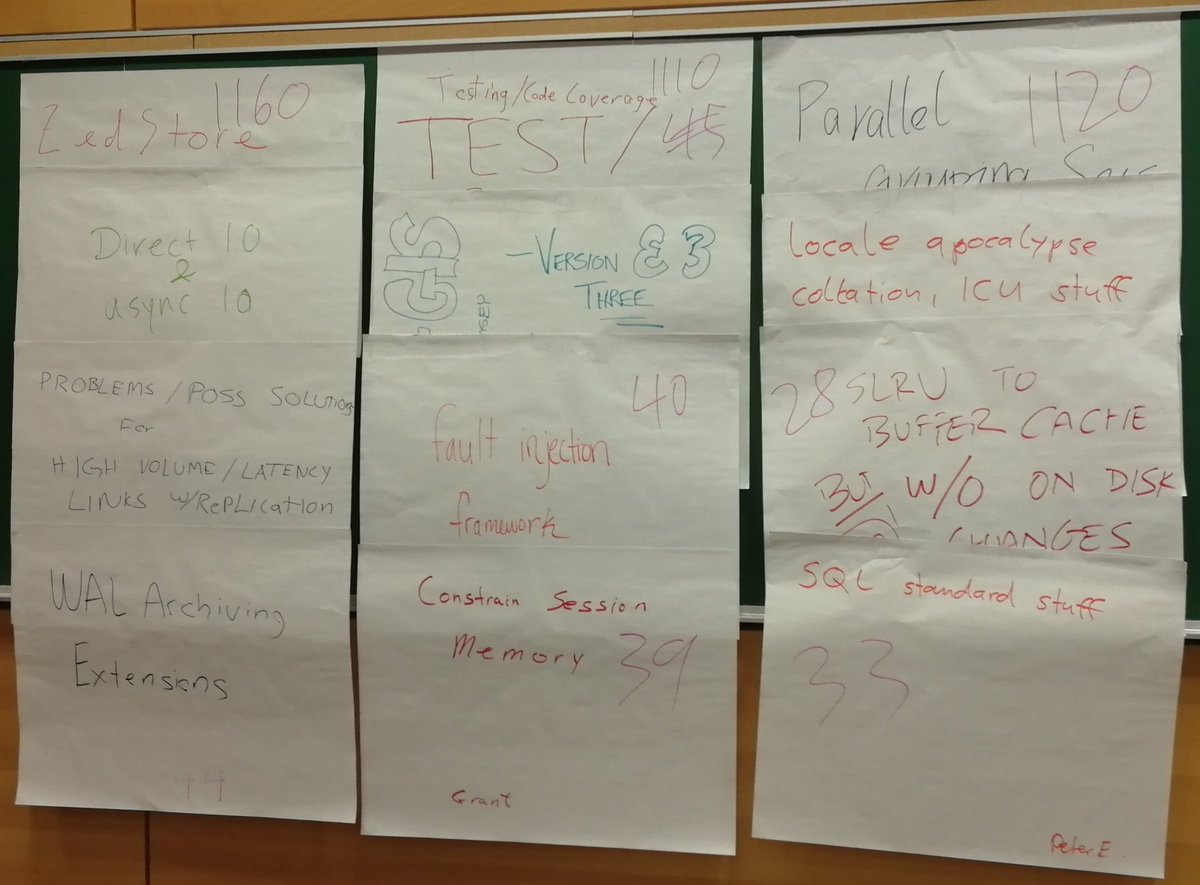 1160
Zed Store
Direct IO
2
async IO
PROBLEMS / POSS SOLUTIONS
FOR
HIGH VOLUME / LATENCY
LINKS W/REPLICATION
WAL Archiving
Extensions
44
1110
Testing/Code Coverage
TEST/45
GIS
— VERSION 3
THREE
40
fault injection
framework
Constrain Session
Memory 39
Grant
Parallel 1120
grouping
Locale apocalypse
collation, ICU stuff
28 SLRU TO
BUFFER CACHE
BUT W/O ON DISK
CHANGES
SQL standard stuff
33
Peter E.